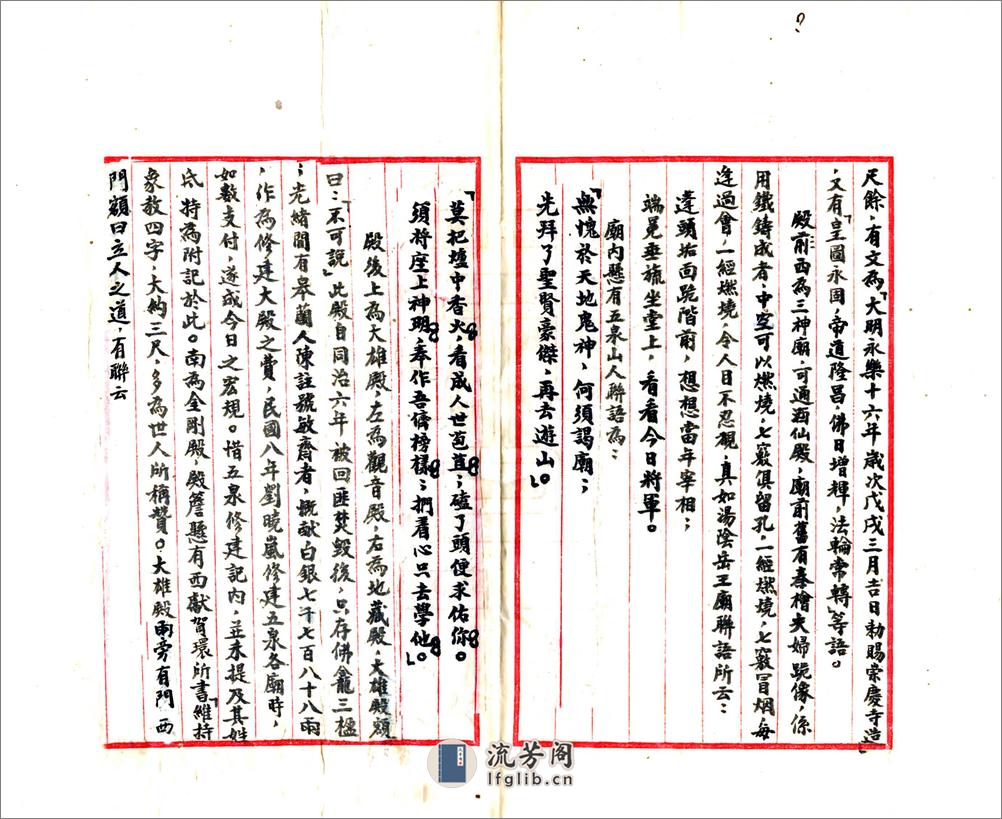 尺餘，有文為「大明永樂十六年歲次戊戌三月吉日勅賜崇慶寺造」
，又有「皇圖永固，帝道隆昌，佛日增輝，法輪常轉」等語。
殿前西為三神廟，可通酒仙殿，廟前舊有秦檜夫婦跪像，係
用鐵鑄成者，中空可以燃燒，七竅俱留孔，一經燃燒，七竅冒烟，每
逢過會，一經燃燒，令人目不忍覩，真如湯陰岳王廟聯語所云：
蓬頭垢面跪階前，想想當年宰相；
端冕垂旒坐堂上，看看今日將軍。
廟內懸有五泉山人聯語為：
「無愧於天地鬼神，何須謁廟；
先拜了聖賢豪傑，再去遊山」。
「莫把壇中香火，看成人世苞苴；磕了頭便求佑你。
須將座上神明，奉作吾儕榜樣；捫着心只去學他」。
殿後上為大雄殿，左為觀音殿，右為地藏殿，大雄殿額
曰：「不可說」此殿自同治六年，被回匪焚毀後，只存佛龕三楹
；光緒間有皋蘭人陳註號敏齋者，慨献白銀七千七百八十八兩
，作為修建大殿之費，民國八年劉曉嵐修建五泉各廟時，
如數支付，遂成今日之宏規。惜五泉修建記內，並未提及其姓
氏，特為附記於此。南為金剛殿，殿簷懸有西献賀環所書「維持
象教四字，大約三尺，多為世人所稱贊。大雄殿兩旁有門，西
門額曰立人之道，有聯云
流芳阁
lfglib.cn